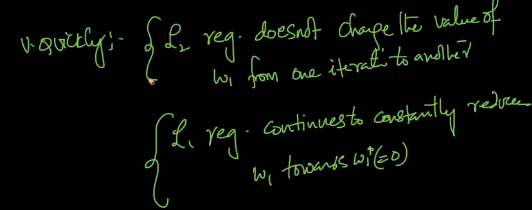 v. quickly :- { L2 reg. does not change the value of
w1 from one iterati to another
{ L1 reg. continues to constantly reduce
w1 towards w1* (=0)